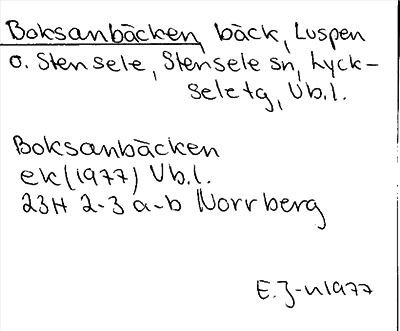 Boksanbäcken, bäck, Luspen
o. Stensele, Stensele sn, Lyck-
sele tg, Vb.l.
Boksanbäcken
ek (1977) Vb.l.
23H 2-3 a-b Norrberg
E.J-n 1977